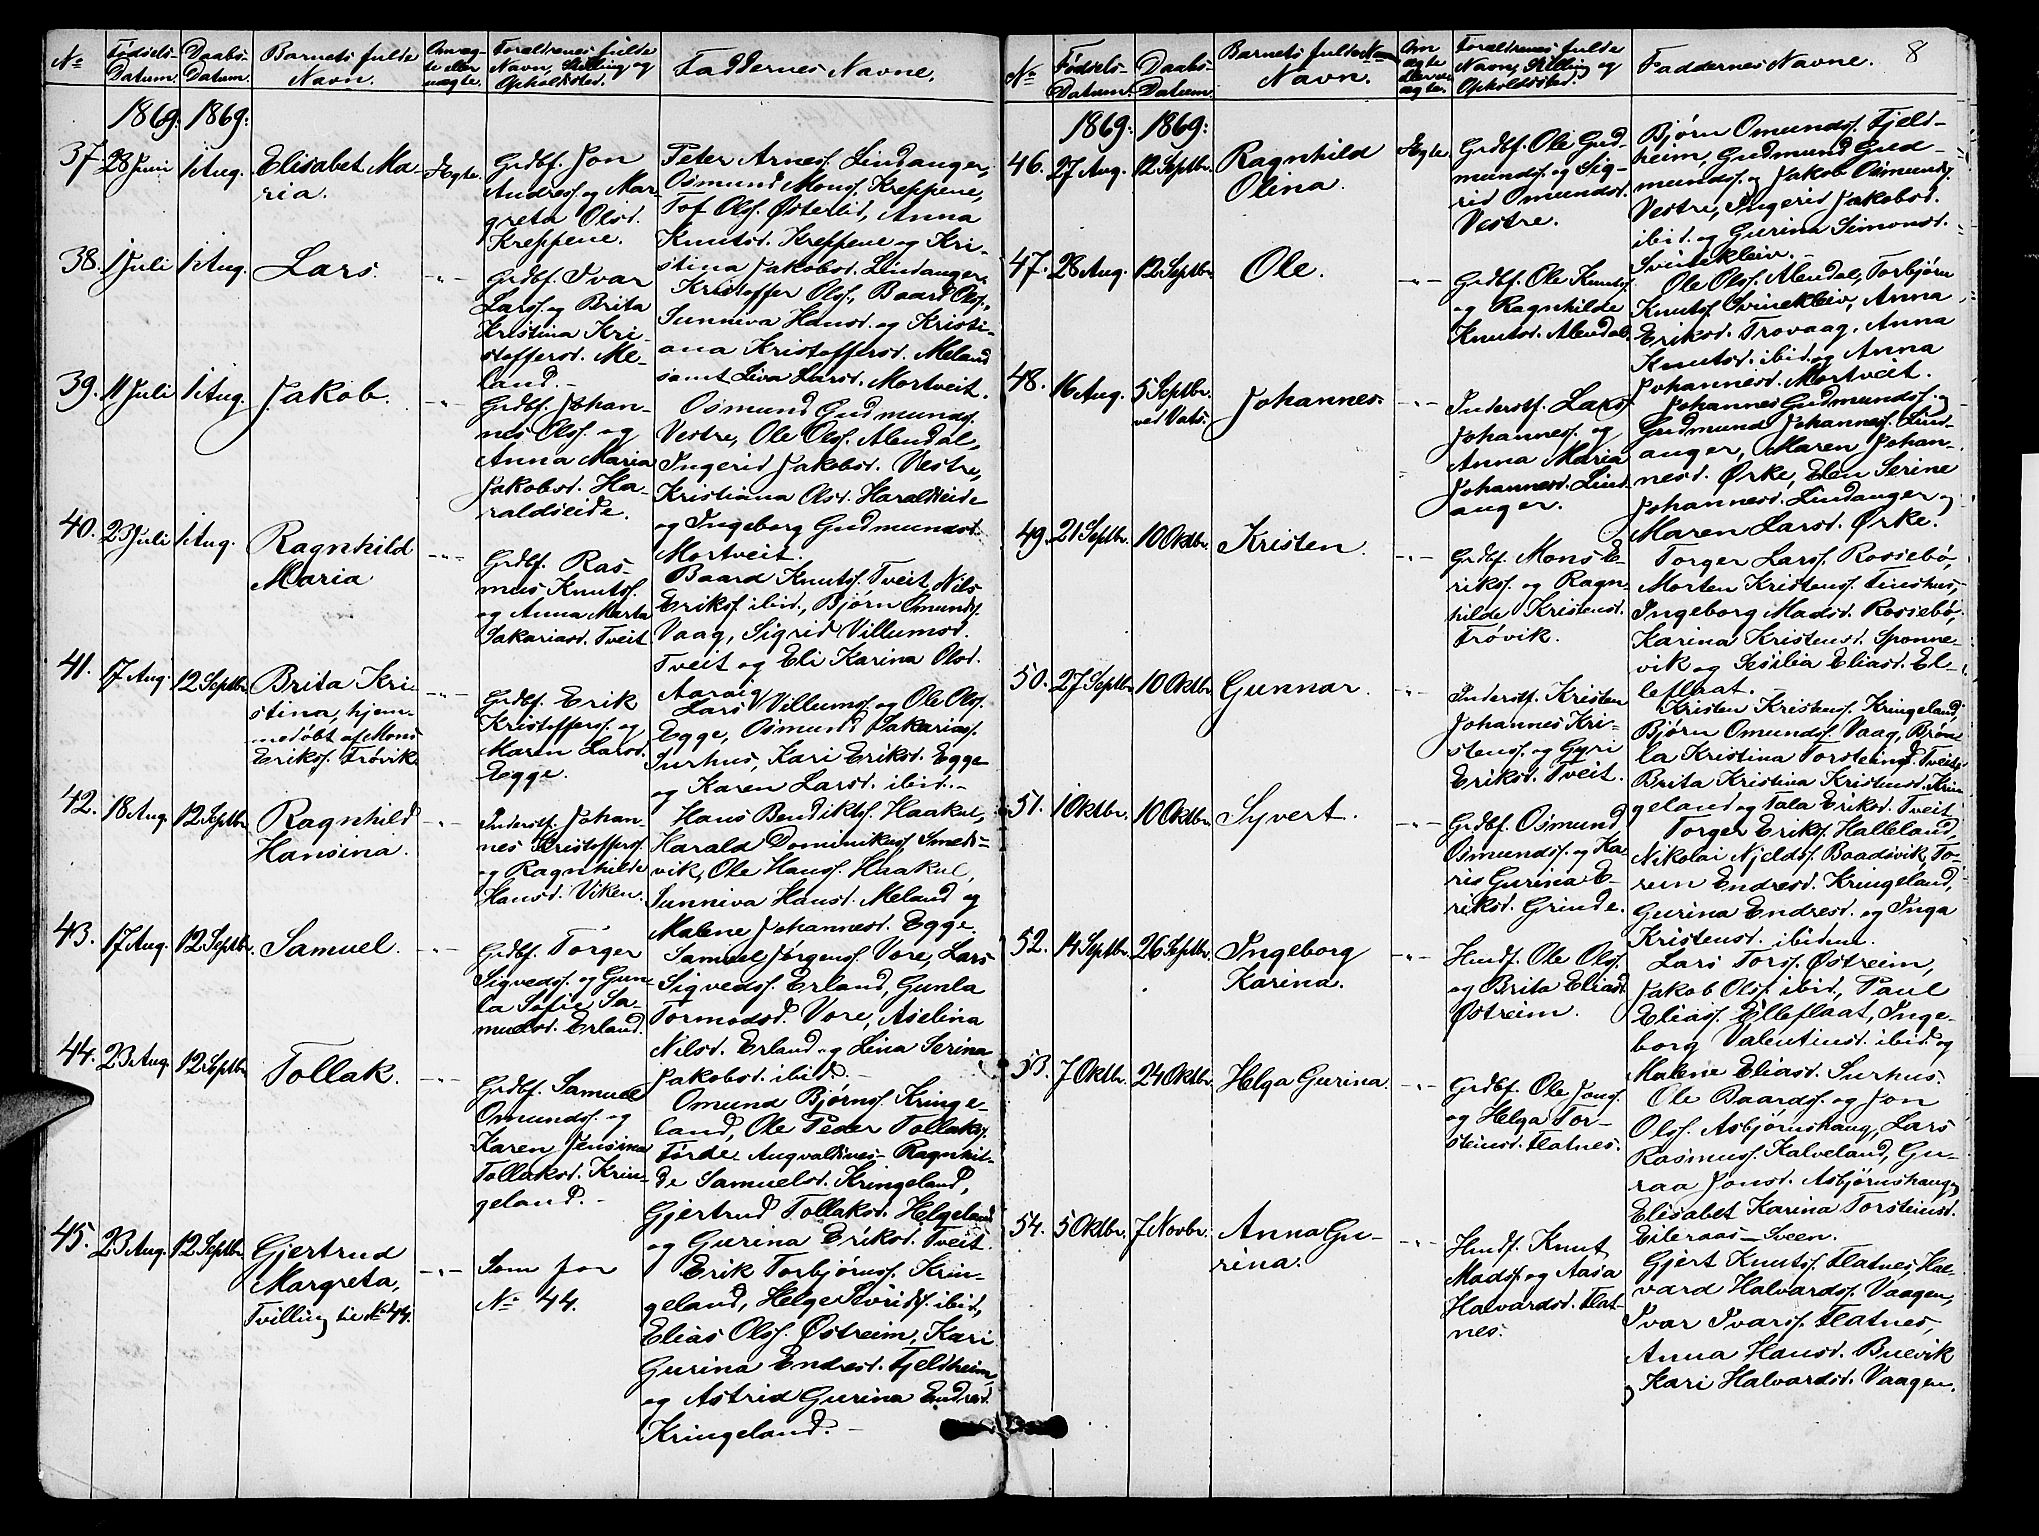 No
Fødsels-
Datum.
Daabs-
Datum.
Barnets fulde
Navn.
Om æg-
te eller
uægte.
Forældrenes fulde
Navn, Stilling og
Opholdssted.
Faddernes Navne.
1869: 1869:
37. 28 Juni 1 Aug. Elisabet Ma-
ria.
Ægte.
Grdbf. Jon
Andress. og Mar-
greta Olsd.
Kreppene.
Peter Arness. Lindanger,
Osmund Monss. Kreppene,
Tof Olss. Østerlid, Anna
Knutsd. Kreppene og Kri-
stina Jakobsd. Lindanger.
38. 1 Juli 1 Aug. Lars.
-"-
Grdbf. Ivar
Larss. og Brita
Kristina Kri-
stoffersd. Me-
land.-
Kristoffer Olss., Baard Olss.,
Sunniva Hansd. og Kristi-
ana Kristoffersd. Meland
samt Liva Larsd. Mortveit.
39. 11 Juli 1 Aug. Jakob.
-"-
Grdbf. Johan-
nes Olss. og
Anna Maria
Jakobsd. Ha-
raldseide.
Osmund Gudmunds.
Vestre, Ole Olss. Alendal,
Ingerid Jakobsd. Vestre,
Kristiana Olsd. Haraldseide
og Ingeborg Gudmundsd.
Mortveit.
40. 23 Juli 1 Aug. Ragnhild
Maria
-"-
Grdbf. Ras-
mus Knutss.
og Anna Marta
Sakariasd. Tveit
Baard Knutss. Tveit, Nils
Erikss. ibid., Bjørn Omunds.
Vaag, Sigrid Villumsd.
Tveit og Eli Karina Olsd.
Aarvig
41. 17 Aug. 12 Septbr. Brita Kri-
stina, hjem-
medøbt af Mons
Erikss. Trøvik.
-"-
Grdbf. Erik
Kristofferss. og
Maren Larsd.
Egge.
Lars Villumss. og Ole Olss.
Egge, Osmund Sakarias.
Surhus, Kari Eriksd. Egge
og Karen Larsd. ibid.-
42. 18 Aug. 12 Septbr. Ragnhild
Hansina.
-"-
Inderstf. Johan-
nes Kristofferss.
og Ragnhilde
Hansd. Viken.
Hans Bendiktss. Haakul,
Harald Dominikuss. Smeds-
vik, Ole Hanss. Haakul,
Sunniva Hansd. Meland og
Malene Johannesd. Egge.
43. 17 Aug. 12 Septbr. Samuel.
-"-
Grdbf. Torger
Sigvedss. og Gun-
la Sofie Sa-
muelsd. Erland.
Samuel Jørgenss. Vore, Lars
Sigvedss. Erland, Gunla
Tormodsd. Vore, Aselina
Nilsd. Erland og Lina Serina
Jakobsd. ibid.-
44. 23 Aug. 12 Septbr. Tollak.
-"-
Grdbf. Samuel
Omundss. og
Karen Jensina
Tollaksd. Krin-
geland.-
Omund Bjørnss. Kringe-
land, Ole Peder Tollaks.
Førde Augvaldnes- Ragnhil-
de Samuelsd. Kringeland,
Gjertrud Tollaksd. Helgeland
og Gurina Eriksd. Tveit.
45. 23 Aug. 12 Septbr. Gjertrud
Margreta,
Tvilling til No 44.
-"-
Som for
No 44.
Erik Torbjørnss. Krin-
geland, Helge Sivrids. ibid.,
Elias Olss. Østreim, Kari
Gurina Endresd. Fjeldheim
og Astrid Gurina Endresd.
Kringeland.-
8
No
Fødsels-
Datum.
Daabs-
Datum.
Barnets fulde Navn
Navn.
Om
ægte
eller u-
ægte.
Forældrenes fulde
Navn, Stilling og
Opholdssted.
Faddernes Navne.
1869: 1869:
46. 27 Aug. 12 Septbr. Ragnhild
Olina.
Ægte.
Grdbf. Ole Gud-
mundss. og Sig-
rid Omundsd.
Vestre.
Bjørn Omundss. Fjeld-
heim, Gudmund Gud-
mundss. og Jakob Osmunds.
Vestre, Ingerid Jakobsd.
ibid. og Gurina Simonsd.
Svinekleiv.-
47. 28 Aug. 12 Septbr. Ole.
-"-
Grdbf. Ole Knutss.
og Ragnhilde
Knutsd. Alendal.
Ole Olss. Alendal, Torbjørn
Knutss. Svinekleiv, Anna
Eriksd. Trovaag, Anna
Knutsd. ibid. og Anna
Johannesd. Mortveit.
48. 16 Aug. 5 Septbr.
ved Vats.
Johannes.
-"-
Inderstf. Lars
Johanness. og
Anna Maria
Johannesd. Lind-
anger.
Johannes Gudmundss. og
Gudmund Johanness. Lind-
anger, Maren Johan-
nesd. Ørke, Elen Serine
Johannesd. Lindanger og
Maren Larsd. Ørke.
49. 21 Septbr. 10 Oktbr. Kristen.
-"-
Grdbf. Mons E-
rikss. og Ragn-
hilde Kristensd.
Trøvik.
Torger Larss. Rossebø,
Morten Kristenss. Tinshus,
Ingeborg Madsd. Rossebø,
Karina Kristensd. Sponne-
vik og Sesilia Eliasd. El-
leflaat.
50. 27 Septbr. 10 Oktbr. Gunnar.
-"-
Inderstf. Kristen
Johannes Kri-
stenss. og Gyri
Eriksd. Tveit.
Kristen Kristenss. Kringeland,
Bjørn Omundss. Vaag, Brøne-
la Kristina Torsteinsd. Tveit,
Brita Kristina Kristensd. Krin-
geland og Tala Eriksd. Tveit
51. 1 Oktbr. 10 Oktbr. Syvert.
-"-
Grdbf. Osmund
Osmundss. og Ka-
ris Gurina E-
riksd. Grinde.
Torger Erikss. Halleland,
Nikolai Njeldss. Baadsvik, To-
rine Endresd. Kringeland,
Gurina Endresd. og Inga
Kristensd. ibidm.
52. 14 Septbr. 26 Septbr. Ingeborg
Karina.
-"-
Husf. Ole Olss.
og Brita Eliasd.
Østreim.
Lars Torss. Østreim,
Jakob Olss. ibid., Paul
Eliass. Elleflaat, Inge-
borg Valentinsd. ibid. og
Malene Eliasd. Surhus.
53. 7 Oktbr. 24 Oktbr. Helga Gurina.
-"-
Grdbf. Ole Jonss.
og Helga Tor-
steinsd. Flatnes.
Ole Baardss. og Jon
Olss. Asbjørnshaug, Lars
Rasmuss. Kalveland, Gu-
raa Jonsd. Asbjørnshaug,
Elisabet Karina Torsteinsd.
Eileraas-Sveen.
54. 5 Oktbr. 7 Novbr. Anna Gu-
rina.
-"-
Husf. Knut
Madss. og Aasa
Halvardsd. Flat-
nes.
Gjert Knutss. Flatnes, Hal-
vard Halvardss. Vaagen,
Ivar Ivarss. Flatnes,
Anna Hansd. Buevik
og Kari Halvardsd. Vaagen.